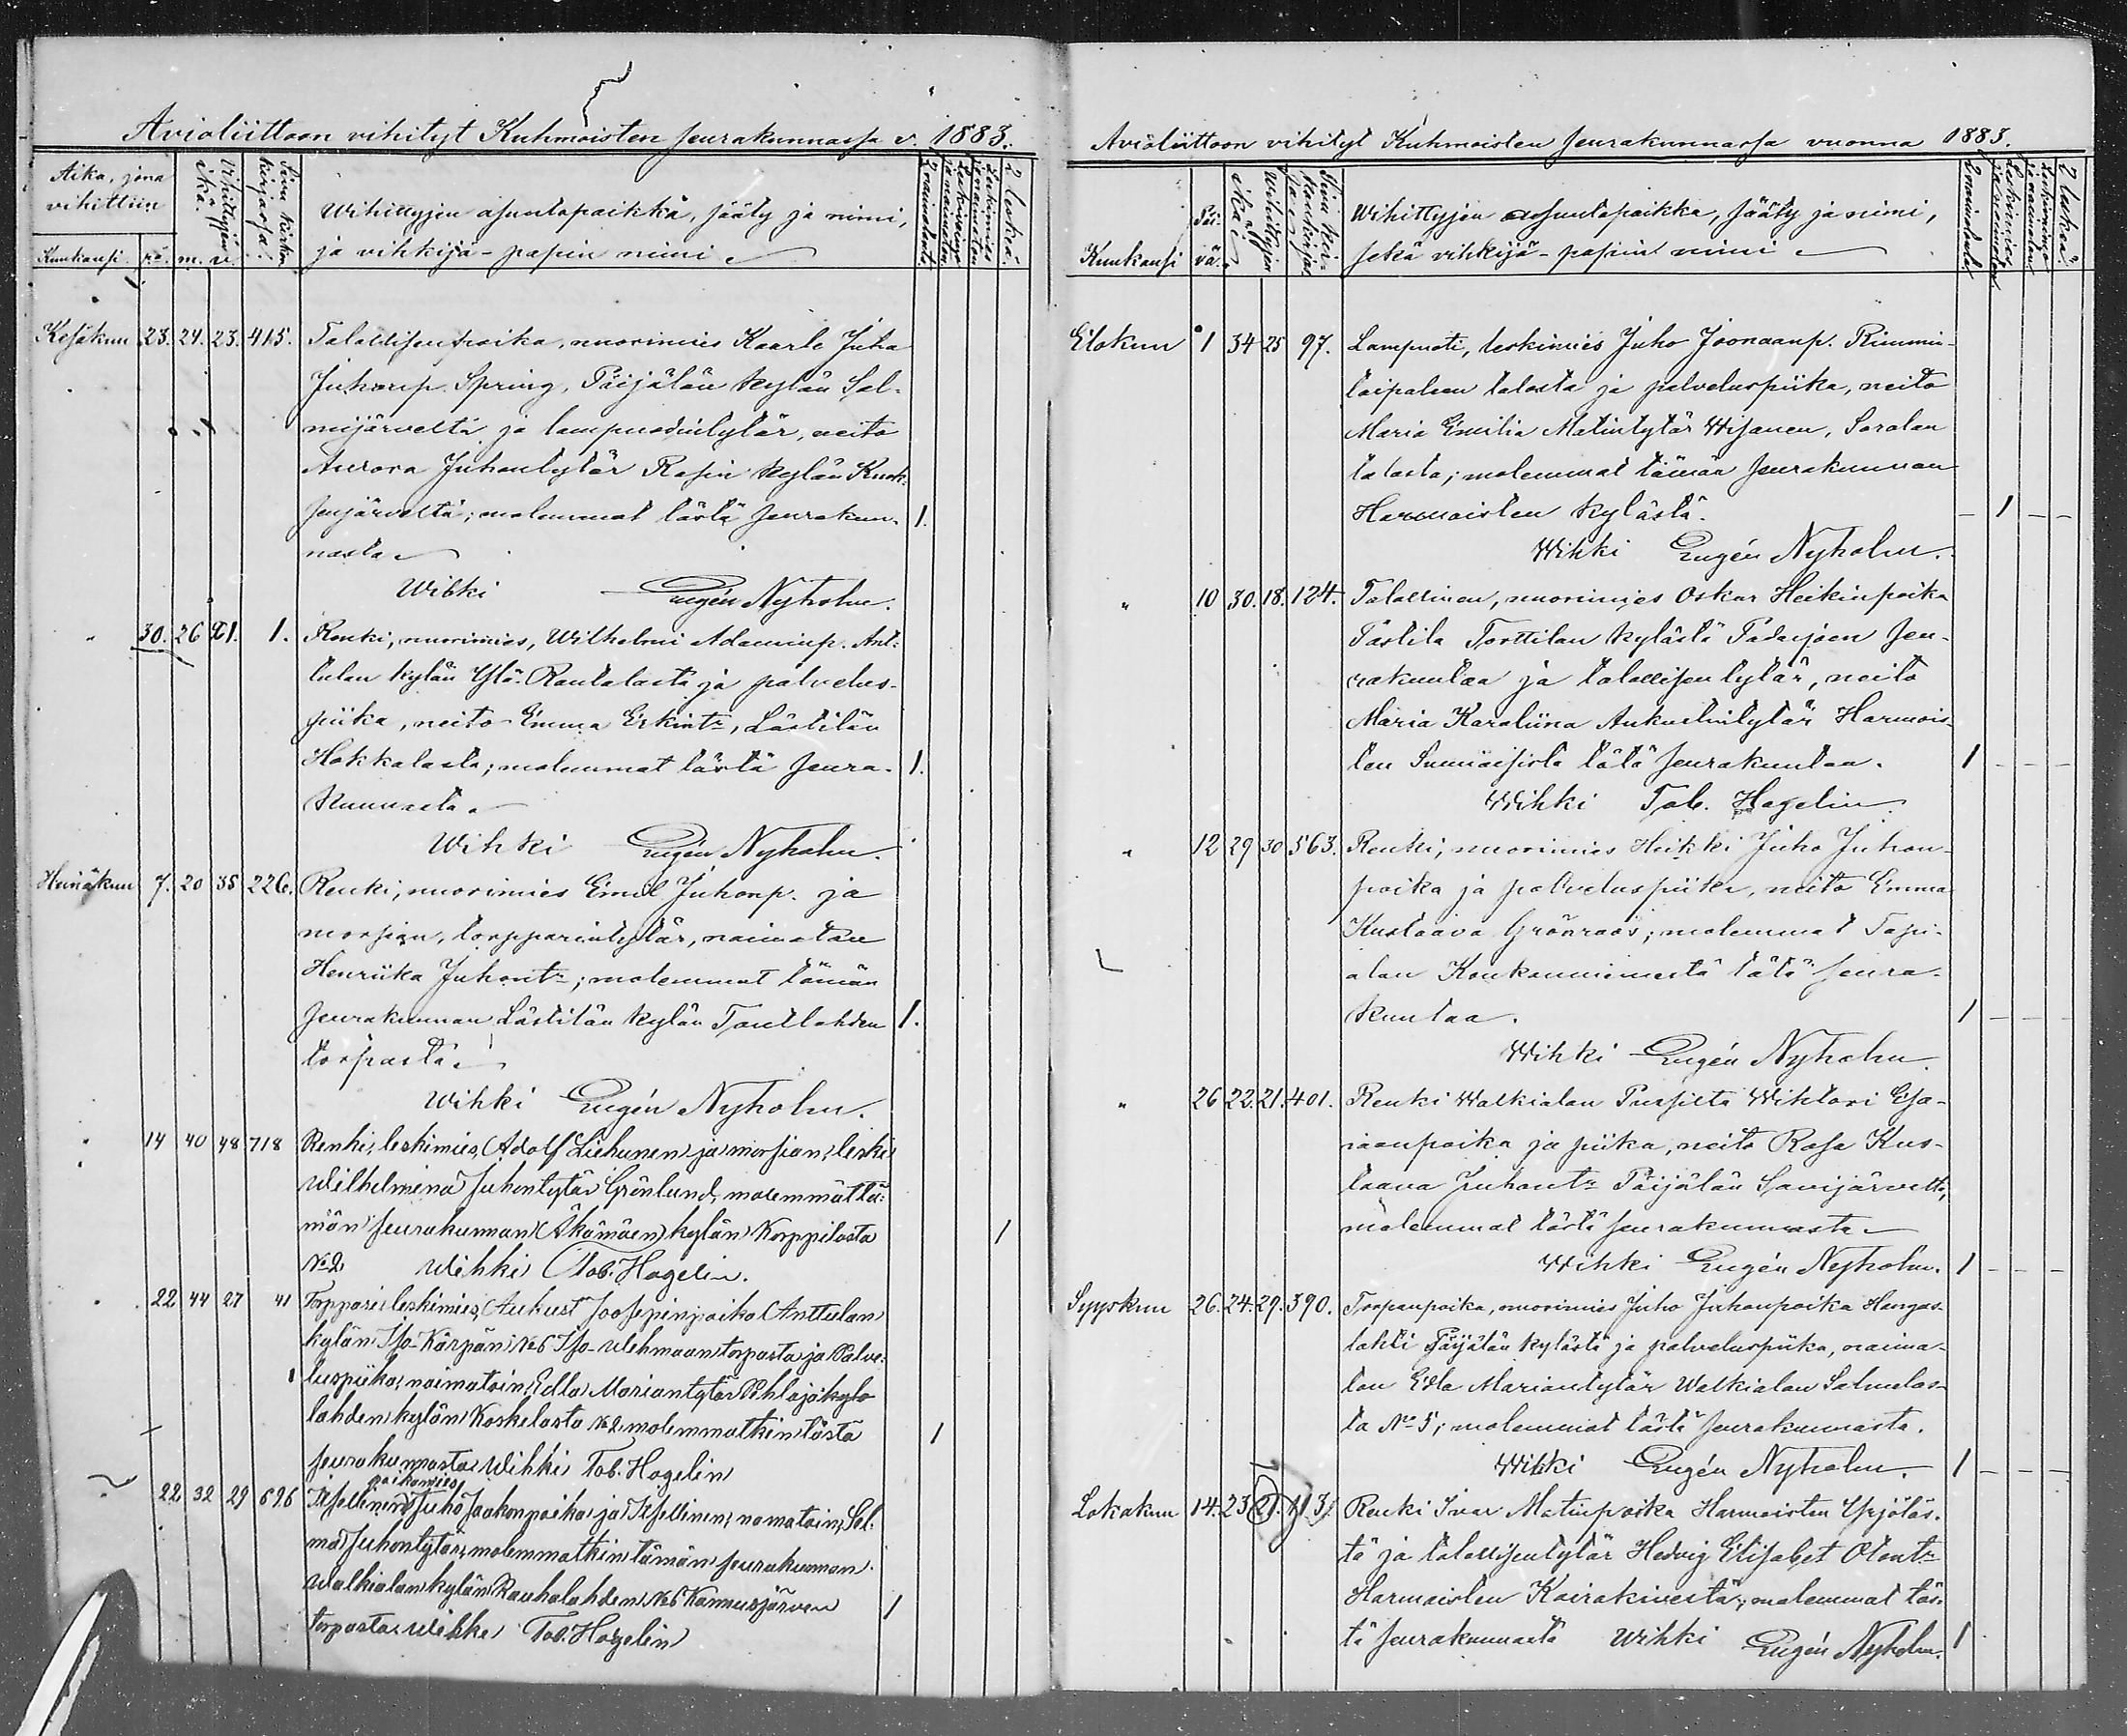 Avioliittoon vihityt Kuhmoisten seurakunnassa v. 1883.
Aika, jona vihittiin
Kuukausi. pä.
Vihittyjen ikä.
m. n.
Sivu kirkonkirjassa.
Wihittyjen asuntopaikka, sääty ja nimi,
ja vihkijä-papin nimi
2 naimatonta
Leskimies ja naimaton
2 leskeä.
Kesäkuu 23. 24. 23. 415. Talollisen poika, nuorimies Kaarle Juha
Juhonp. Spring, Päijälän kylän Sal-
mijärveltä ja lampuodintytär, neito
Aurora Juhontytär Rasin kylän Kuok-
senjärveltä; molemmat tästä seurakun- 1.
nasta
Wihki Eugén Nyholm.
" 30. 26 21. 1. Renki, nuorimies, Wilhelmi Adaminp. Ant-
tulan kylän Ylä-Rautalasta ja palvelus-
piika, neito Emma Erkint:, Lästilän
Hakkalasta; molemmat tästä seura- 1.
kunnasta
Wihki Eugén Nyholm.
Heinäkuu 7. 20 35 226. Renki, nuorimies Emil Juhonp. ja
morsian, torpparintytär, naimaton
Henriika Juhont:; molemmat tämän
seurakunnan Lästilän kylän Tautlahden 1.
torpasta
Wihki Eugén Nyholm.
" 14 40 48 718 Renki, leskimies, Adolf Liehunen ja morsian, leski
Wilhelmina Juhontytär Grönlund, molemmat tä-
män seurakunnan Äkämäen kylän Korppilasta 1
No 2 Wihki Tob. Hagelin.
" 22 44 27 41 Torppari leskimies, Aukust Joosepinpoika Anttulan
kylän Iso-Kärpän No 6 Iso-Wehmaan torpasta ja Palve-
luspiika, naimatoin, Edla Mariantytär Pihlajakylä
lahden kylän Koskelasta No 2 molemmatkin tästä 1
seurakunnasta Wihki Tob. Hagelin
paikamies
22 32 29 696 Itsellinen Juho Jaakonpoika ja Itsellinen, naimatoin, Sel-
ma Juhontytär, molemmatkin tämän seurakunnan
Walkialan kylän Rauhalahden No 6 Kannusjärven 1
torpasta Wihki Tob. Hagelin
Avioliittoon vihityt Kuhmoisten seurakunnassa vuonna 1883.
Kuukausi
Päivä.
Vihittyjen ikä
Wihittyjen asuntopaikka, sääty ja nimi,
sekä vihkijä-papin nimi
2 naimatonta.
2 leskeä.
Elokuu 1 34 25 97. Lampuoti, leskimies Juho Joonaanp. Rimmin-
taipaleen talosta ja palveluspiika, neito
Maria Emilia Matintytär Wisanen, Saralan
talosta; molemmat tämän seurakunnan
Harmoisten kylästä. – 1 – –
Wihki Eugén Nyholm.
" 10 30. 18. 124. Talollinen, nuorimies Oskar Heikinpoika
Tästilä Torttilan kylästä Padasjoen seu-
rakuntaa ja talollisen tytär, neito
Maria Karoliina Aukustintytär Harmois-
ten Sumiaisista tätä seurakuntaa. 1 – – –
Wihki Tob. Hagelin
" 12 29 30 563. Renki, nuorimies Heikki Juho Juhon-
poika ja palveluspiika, neito Emma
Kustaava Grönroos; molemmat Tapi-
alan Koukunniemestä tätä seura-
kuntaa. 1 – – –
Wihki Eugén Nyholm
" 26 22. 21. 401. Renki Walkialan Pussilta Wihtori Esa-
iaanpoika ja piika, neito Rosa Kus-
taava Juhont: Päijälän Savijärveltä,
molemmat tästä seurakunnasta
Wihki Eugén Nyholm. 1 – – –
Syyskuu 26. 24. 29. 390. Torpanpoika, nuorimies Juho Juhanpoika Hangas-
lahti Päijälän kylästä ja palveluspiika, naima-
ton Edla Mariantytär Walkialan Salmelas-
ta No 5; molemmat tästä seurakunnasta.
Wihki Eugén Nyholm. 1 – – –
Lokakuu 14. 23 21. Renki Ivar Matinpoika Harmoisten Yrjöläs-
tä ja talollisentytär Hedvig Elisabet Otont:
Harmoisten Kairakivestä; molemmat täs-
tä seurakunnasta Wihki Eugén Nyholm. 1